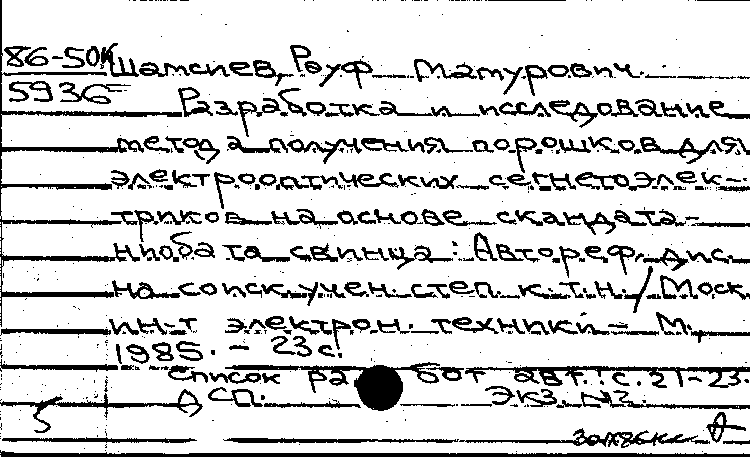 86-50К Шамсиев, Рауф Матурович.
5936 Разработка и исследование
метода получения порошков для
электрооптических сегнетоэлек-
триков на основе скандата-
ниобата свинца: Автореф. дис.
на соиск. учен. степ. к.т.н. / Моск.
ин-т электрон. техники – М.,
1985. – 23 с.
Список работ авт.: с. 21-23.
ДСП. Экз. №2.
5